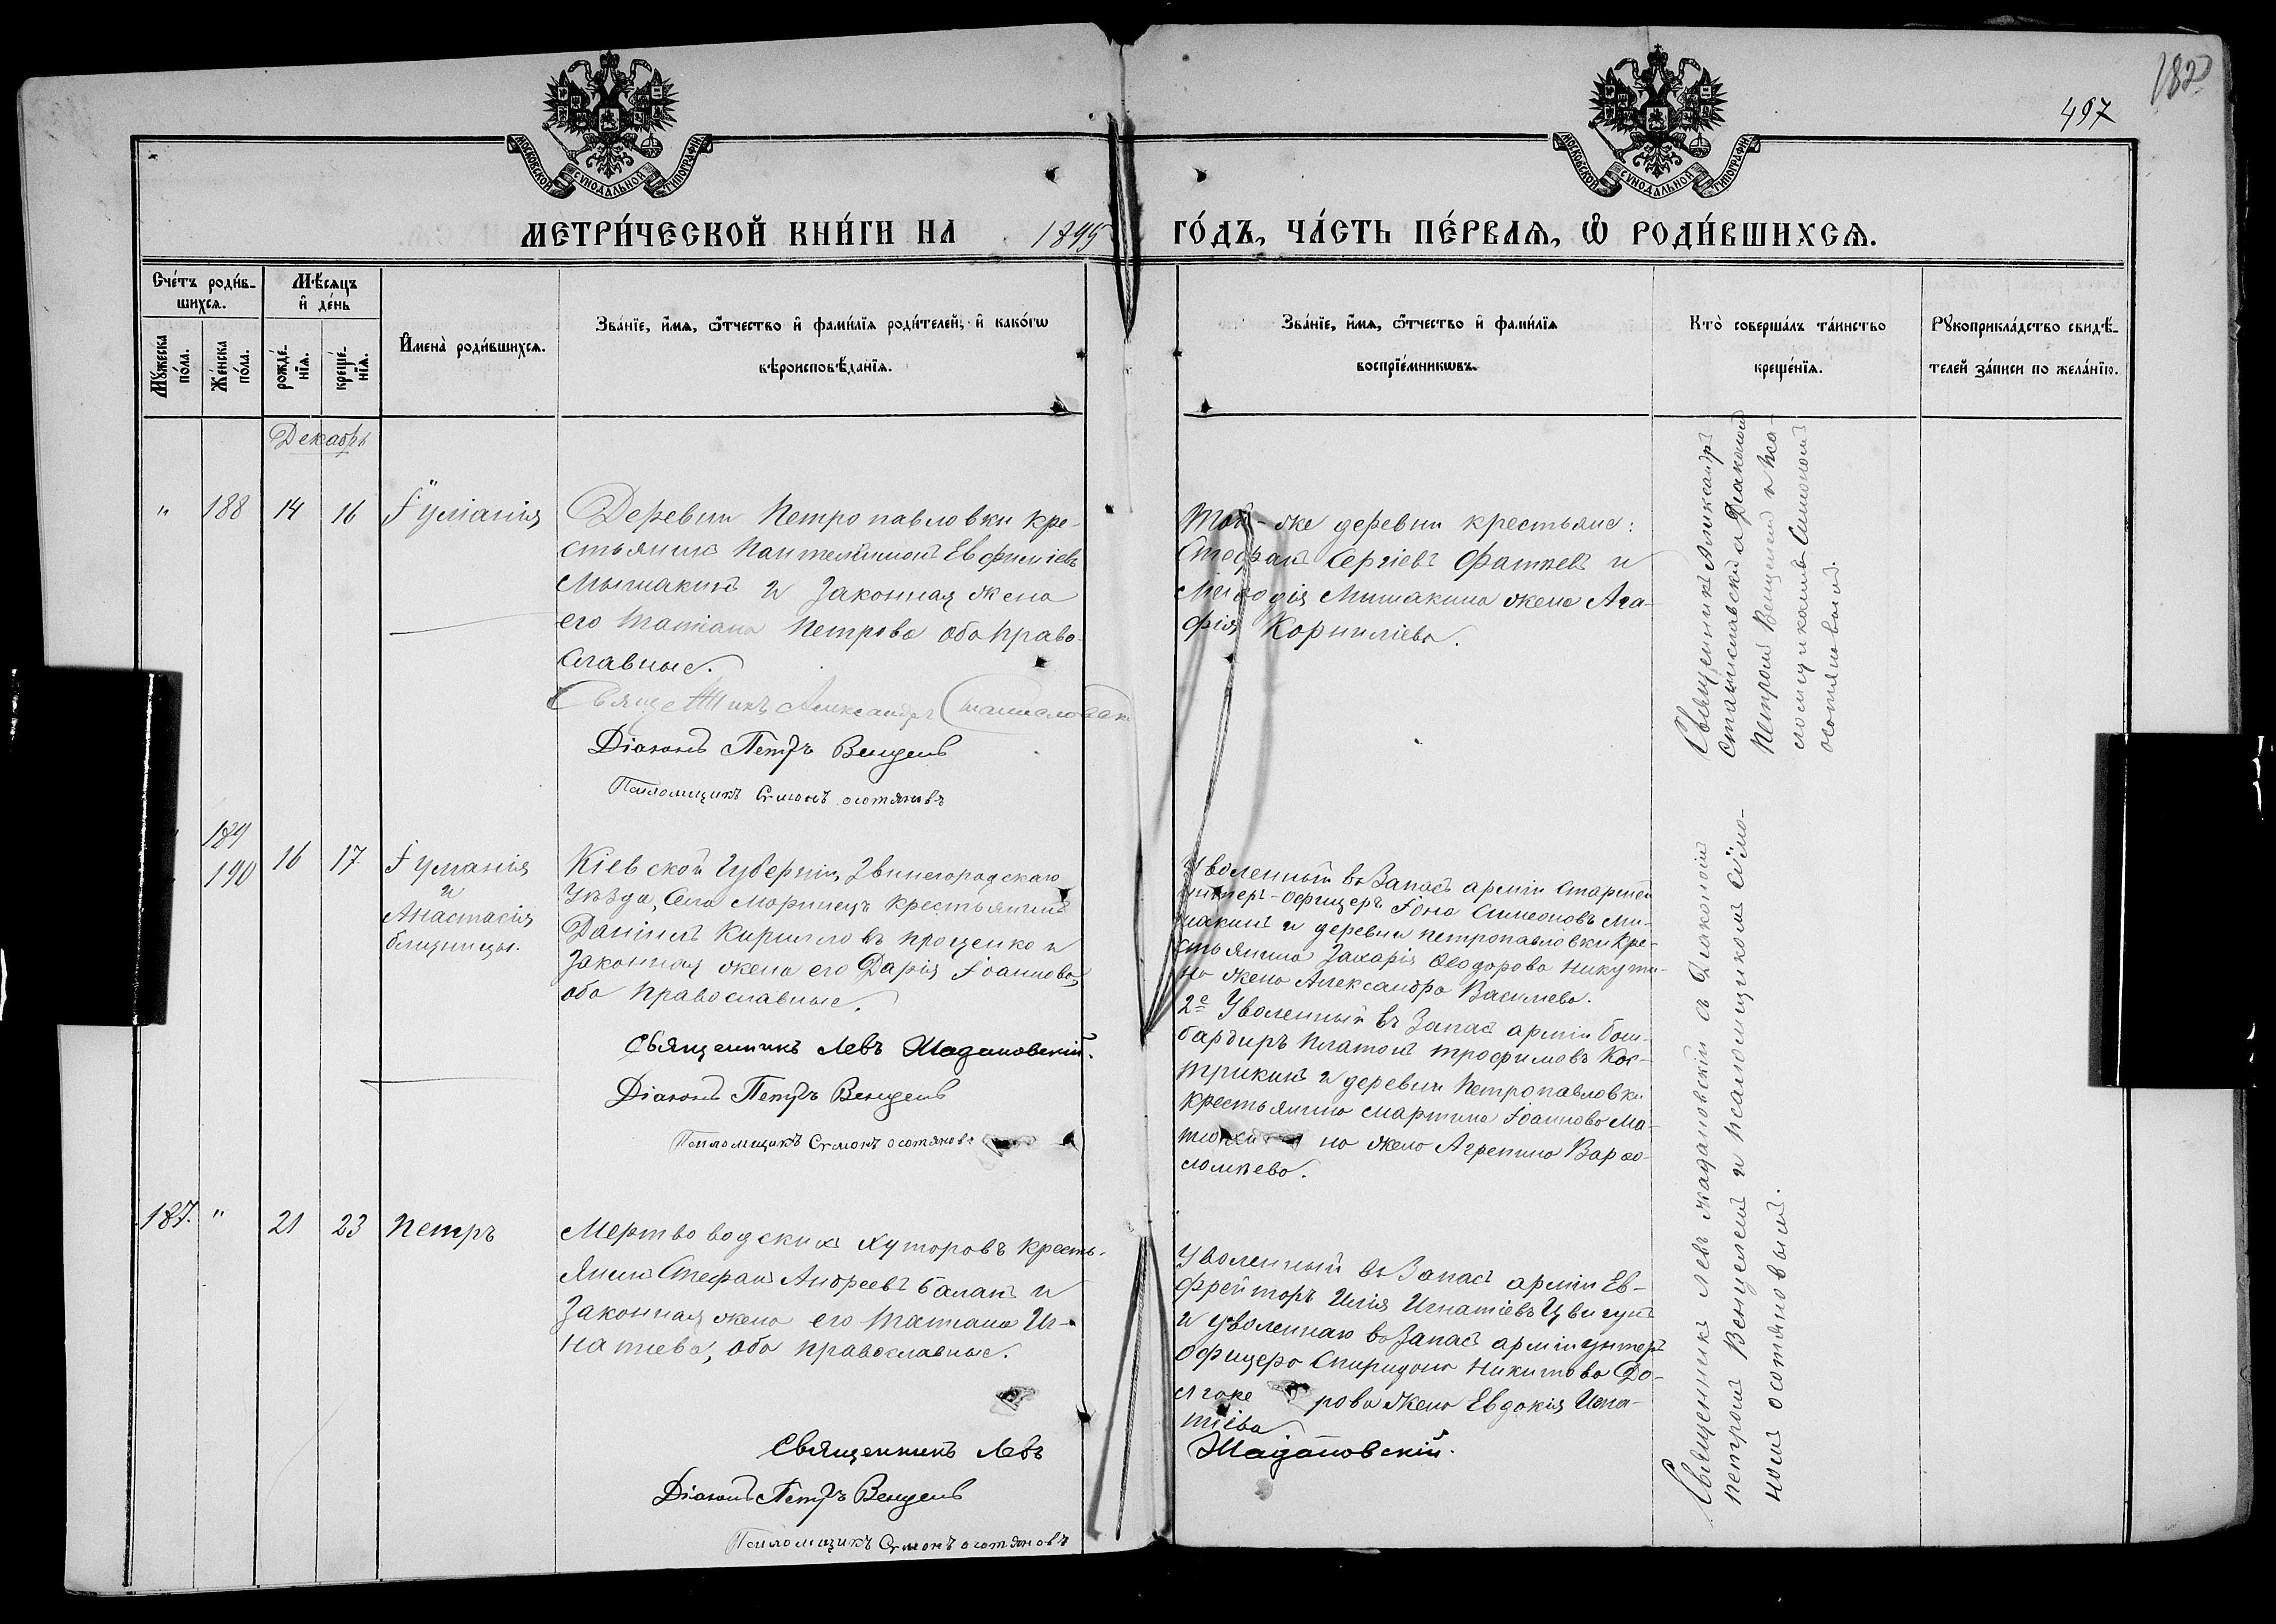 182
497
МОСКОВСКОЙ СѴНОДАЛЬНОЙ ТИПОГРАФІИ
МОСКОВСКОЙ СѴНОДАЛЬНОЙ ТИПОГРАФІИ
МЕТРИ́ЧЕСКОЙ КНИ́ГИ НА 1895 ГО́ДЪ, ЧА́СТЬ ПЕ́РВАѦ, Ѡ҆ РОДИ́ВШИХСѦ.
Сче́тъ роди́в-
шихсѧ.
Мѣ́сѧцъ
и҆ де́нь
Мꙋ́жеска
по́ла.
Же́нска
по́ла.
рожде́-
нїѧ.
креще́-
нїѧ.
И҆мена̀ роди́вшихсѧ.
Зва́нїе, и҆́мѧ, ѻ҆́тчество и҆ фами́лїѧ роди́телей, и҆ како́гѡ
вѣроисповѣ́данїѧ.
Зва́нїе, и҆́мѧ, ѻ҆́тчество и҆ фами́лїѧ
воспрїе́мникѡвъ.
Кто̀ соверша́лъ та́инство
креще́нїѧ.
Рꙋкоприкла́дство свидѣ́-
телей за́писи по жела́нїю.
Декабрь
" 188 14 16 Іуліанія
Деревни Петропавловки кре-
стьянинъ Пантелеймонъ Евфиміевъ
Мышакинъ и законная жена
его Татіана Петрова оба право-
славные.
Священникъ Александръ Станиславск
Діаконъ Петръ Венцель
Псаломщикъ Сѵмонъ Осотяновъ
Той-же деревни крестьяне:
Стефанъ Сергіевъ Фатѣевъ и
Меѳодія Мишакина жена Ага-
фія Корниліева.
Священникъ Александръ
Станиславскій съ Діакономъ
Петромъ Венцелемъ и Пса-
ломщикомъ Симономъ
Осотяновымъ.
189
190 16 17 Іуліанія
и
Анастасія
близницы.
Кіевской Губерніи, Звинегородскаго
Уѣзда, Села Моринецъ крестьянинъ
Даніилъ Кирилловъ Проценко и
законная жена его Дарія Іоаннова,
оба православные.
Священникъ Левъ Жадановскій.
Діаконъ Петръ Венцель
Псаломщикъ Сѵмонъ Осотяновъ
Уволенный въ Запасъ арміи Старшій
унтеръ-офицеръ Іона Симеоновъ Ми-
шакинъ и деревни Петропавловки кре-
стьянина Захарія Ѳеодорова Никути-
на жена Александра Василіева.
2е Уволенный въ Запасъ арміи Бом-
бардиръ Платонъ Трофимовъ Кос-
трикинъ и деревни Петропавловки
крестьянина Мартина Іоаннова Ма-
тюхи на жена Агрепина Варѳо-
ломѣева.
187. " 21 23 Петръ
Мертвоводскихъ хуторовъ кресть-
янинъ Стефанъ Андреевъ Баланъ и
законная жена его Татіана Иг-
натіева, оба православные.
Священникъ Левъ
Діаконъ Петръ Венцель
Псаломщикъ Сѵмонъ Осотяновъ
Уволенный въ Запасъ арміи Еф-
фрейторъ Илія Игнатіевъ Цвигунъ
и уволеннаго въ Запасъ арміи унтеръ
офицера Спиридона Никитова До-
лгоже рова жена Евдокія Игна-
тіева
Жадановскій.
Священникъ Левъ Жадановскій съ Діакономъ
Петромъ Венцелемъ и Псаломщикомъ Симо-
номъ Осотяновымъ.